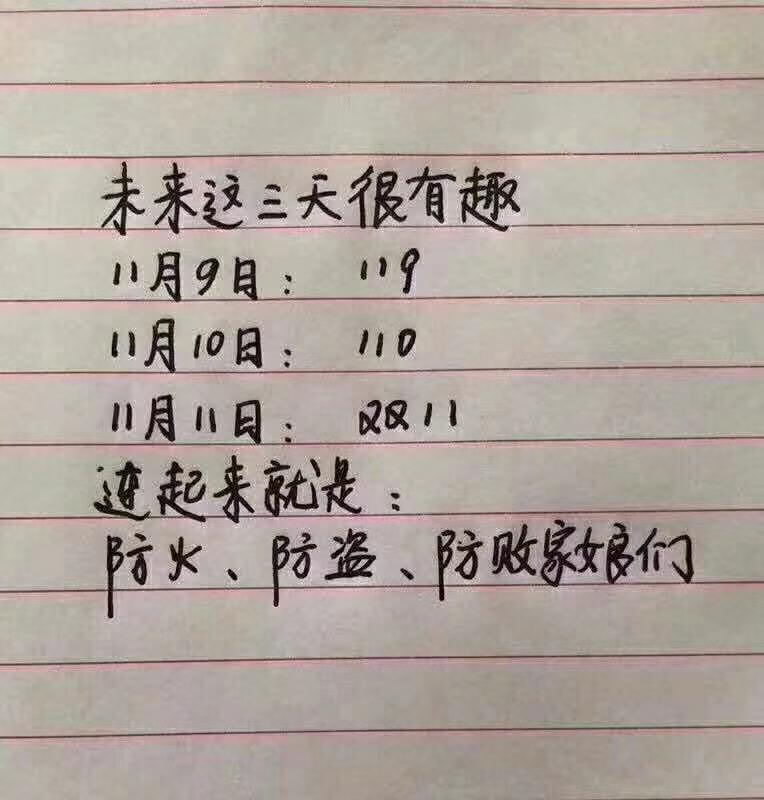 未来这三天很有趣
11月9日： 119
11月10日： 110
11月11日： 双11
连起来就是：
防火、防盗、防败家娘们